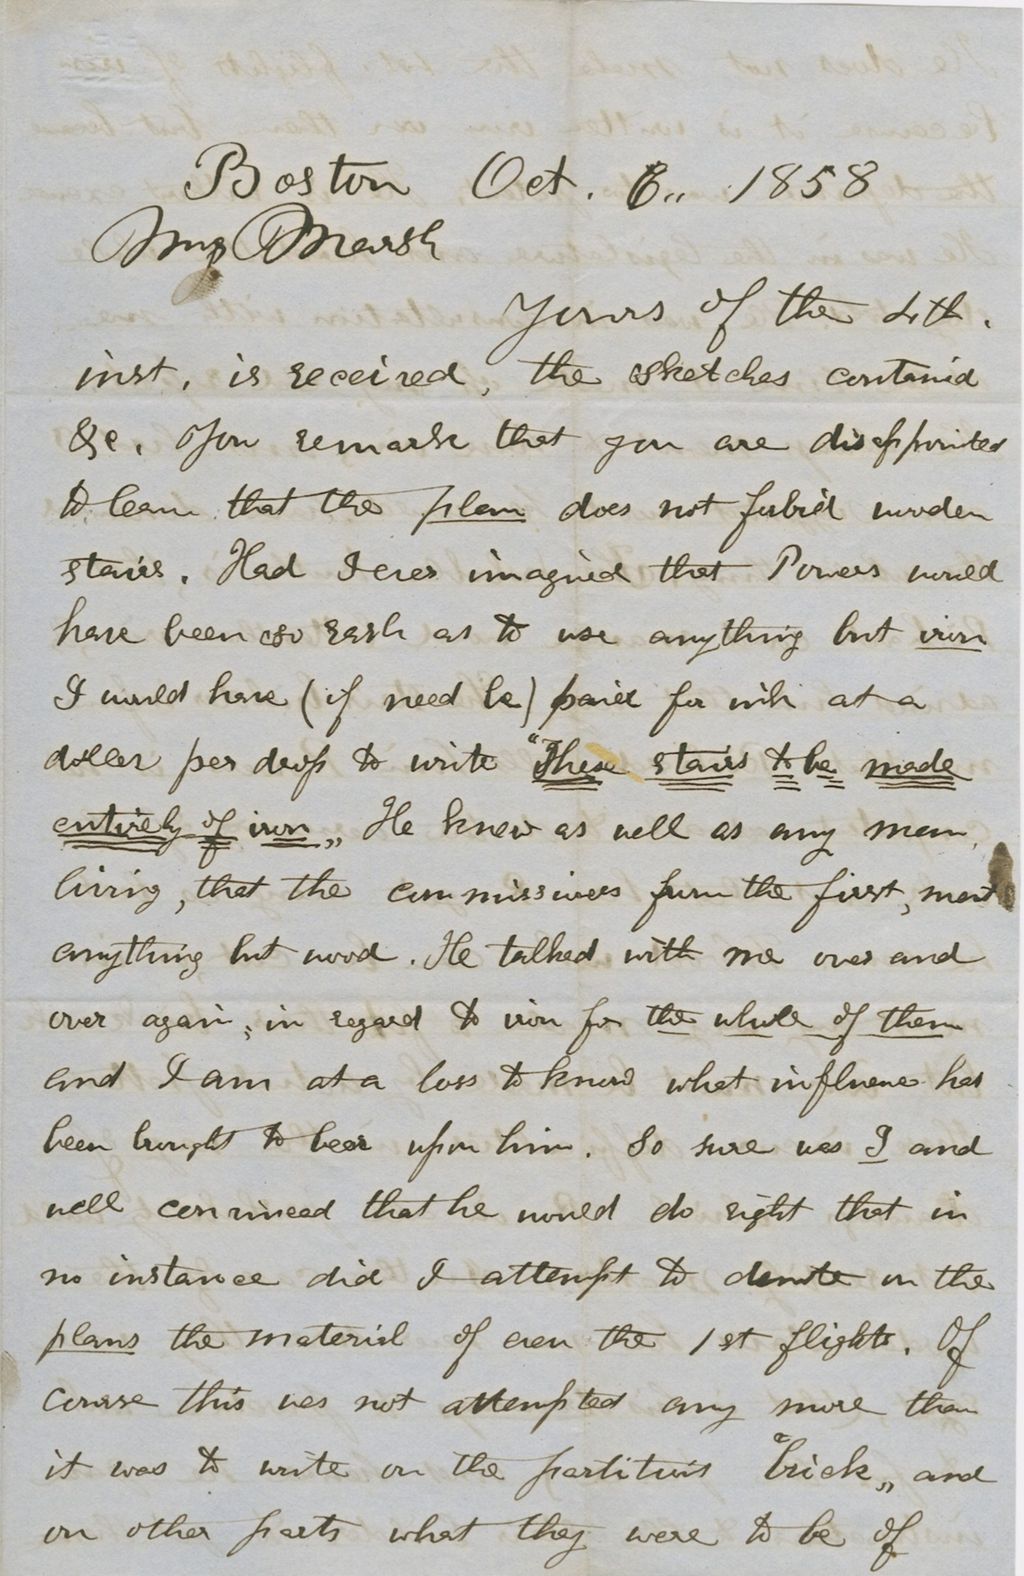 Boston Oct. 6,, 1858
Marsh
Yours of the 4th.
inst. is received, the sketches containd
&c. You remark that you are disappointed
to learn that the plan does not forbid wooden
stairs. Had I ever imagined that Powers would
have been so rash as to use anything but iron
I would have (if need be) paid for ink at a
dollar per drop to write "These stairs to be made
entirely of iron,, He knew as well as any man
living, that the commissioners from the first, meant
anything but wood. He talked with me over and
over again, in regard to iron for the whole of them
and I am at a loss to know what influence has
been brought to bear upon him. So sure was I and
well convinced that he would do right that in
no instance did I attempt to denote on the
plans the material of even the 1st flights. Of
course this was not attempted any more than
it was to write on the partitions "brick,, and
on other parts what they were to be of